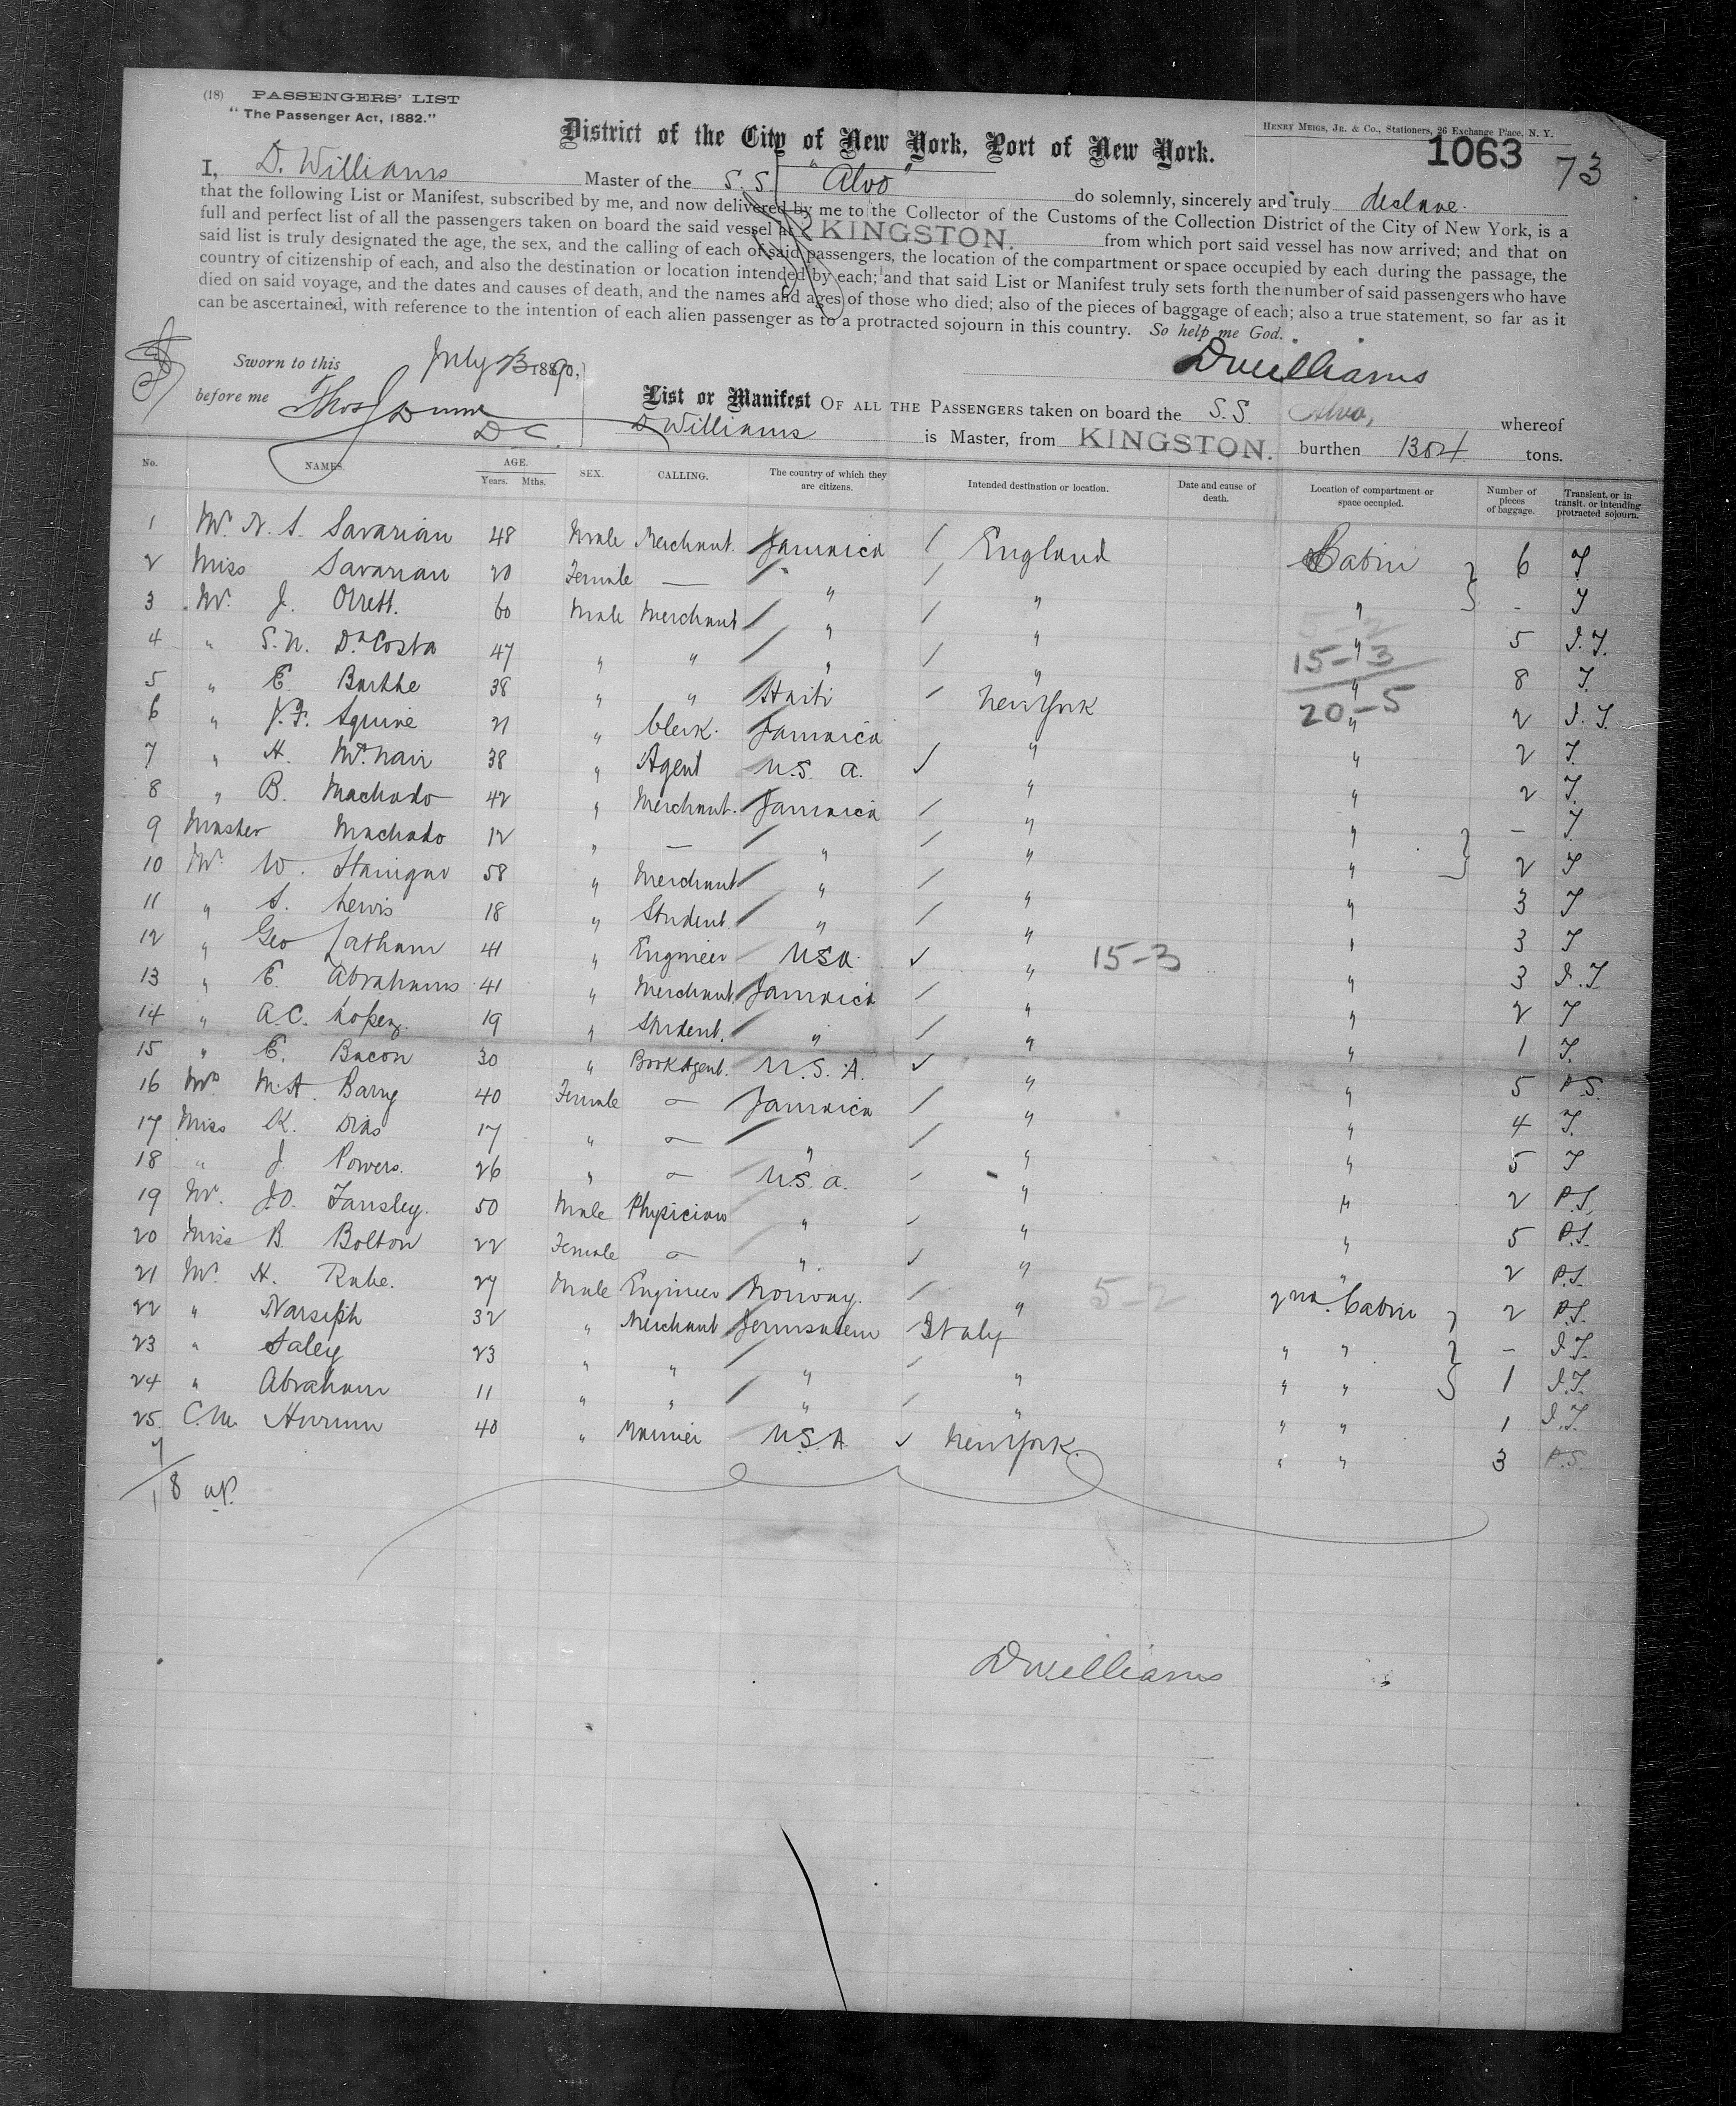 (18) PASSENGERS' LIST
"The Passenger Act, 1882."
HENRY MEIGS, JR. & CO., Stationers, 26 Exchange Place, N. Y.
District of the City of New York, Port of New York.
1063 73
I, D. Williams Master of the S.S. "Alvo" do solemnly, sincerely and truly declare.
that the following List or Manifest, subscribed by me, and now delivered by me to the Collector of the Customs of the Collection District of the City of New York, is a
full and perfect list of all the passengers taken on board the said vessel at KINGSTON. from which port said vessel has now arrived; and that on
said list is truly designated the age, the sex, and the calling of each of said passengers, the location of the compartment or space occupied by each during the passage, the
country of citizenship of each, and also the destination or location intended by each; and that said List or Manifest truly sets forth the number of said passengers who have
died on said voyage, and the dates and causes of death, and the names and ages of those who died; also of the pieces of baggage of each; also a true statement, so far as it
can be ascertained, with reference to the intention of each alien passenger as to a protracted sojourn in this country. So help me God.
Sworn to this July 1890,
DWilliams
before me Thos J Dunn
D.C.
List or Manifest OF ALL THE PASSENGERS taken on board the S.S. Alvo, whereof
D Williams is Master, from KINGSTON. burthen 1304 tons.
No. NAMES. AGE. Years. Mths. SEX. CALLING. The country of which they are citizens. Intended destination or location. Date and cause of death. Location of compartment or space occupied. Number of pieces of baggage. Transient, or in transit, or intending protracted sojourn.
1 Mr. N. S. Savarian 48 Male Merchant. Jamaica / England Cabin 6 T
2 Miss Savarian 20 Female — " / " " - T
3 Mr. J. Orrett. 60 Male Merchant " / " " 5 I.T.
4 " S.N. DaCosta 47 " " " / " " 8 T.
5 " E. Barthe 38 " " Haiti / New York " 2 I.T.
6 " J.F. Squire 21 " Clerk. Jamaica " " 2 T.
7 " H. McNair 38 " Agent U.S.A. ✓ " " 2 T.
8 " B. Machado 42 " Merchant. Jamaica / " " - T
9 Master Machado 12 " — " / " " 2 T
10 Mr. W. 58 " Merchant " / " " 3 T
11 " S. Lewis 18 " Student. " / " " 3 T
12 " Geo Latham 41 " Engineer USA. ✓ " " 3 I.T
13 " E. Abrahams 41 " Merchant. Jamaica / " " 2 T
14 " A.C. Lopez. 19 " Student. " / " " 1 T.
15 " E. Bacon 30 " Book Agent. U.S.A. ✓ " " 5 P.S.
16 Mrs M.A. Barry 40 Female — Jamaica / " " 4 T.
17 Miss K. Dias 17 " — " / " " 5 T
18 " J Powers. 26 " — U.S.A. / " " 2 P.S.
19 Mr. J.O. Tansley. 50 Male Physician " / " " 5 P.S.
20 Miss B. Bolton 22 Female — " ✓ " " 2 P.S.
21 Mr. H. Rabe. 27 Male Engineer Norway. / " 2nd. Cabin 2 P.S.
22 " Narsiph 32 " Merchant Jerusalem / Italy " " - I.T.
23 " Saley 23 " " " / " " " 1 I.T.
24 " Abraham 11 " " " / " " " 1 I.T.
25. C.M. 40 " U.S.A. ✓ New York. " " 3 P.S.
15-3
20-5
15-3
5-2
18
DWilliams